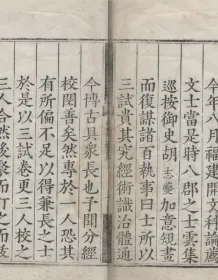 今年八月福建開文科論薦
文士當是時八郡之士雲集
巡按御史胡志夔加意規畫
而復謀諸百執事曰士所以
三試貴其究經術識治體通
今博古具衆長也予聞分經
校閱善矣然專於一人恐其
有所偏不足以得兼長之士
於是以三試卷更三人校之
三人合然後彙而訂之而